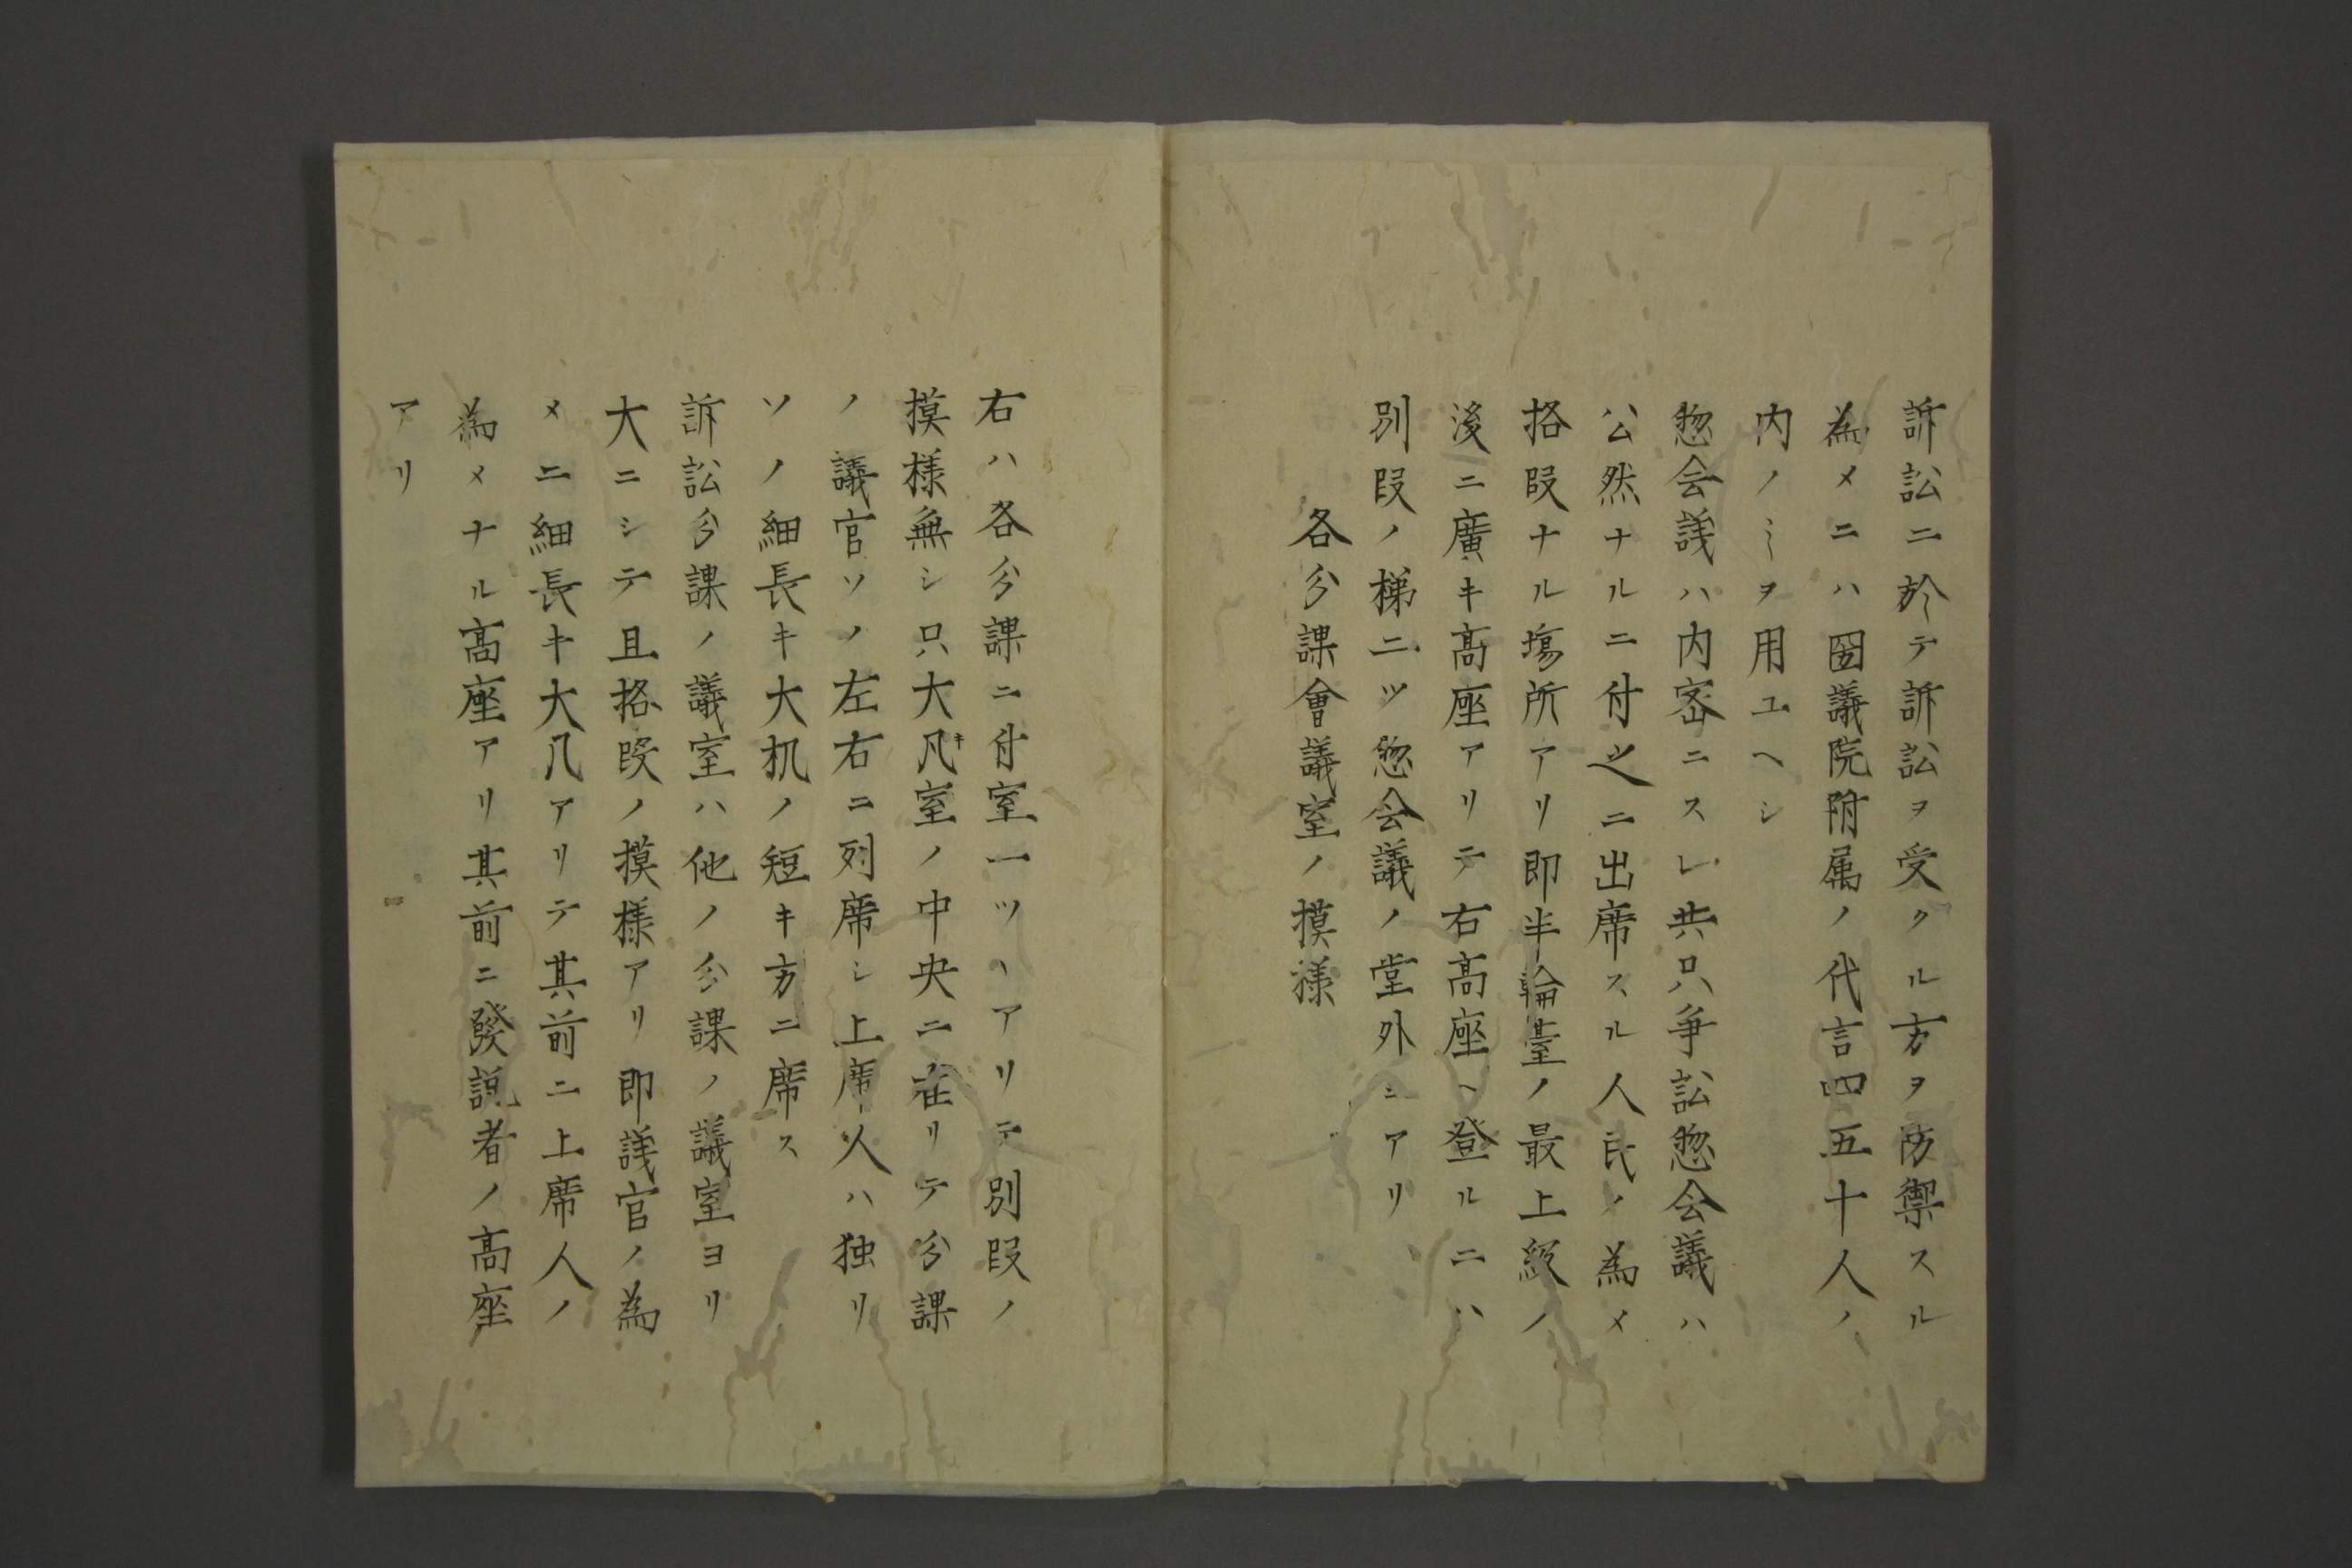 訴訟ニ於テ訴訟ヲ受クル方ヲ防禦スル
為メニハ囯議院附属ノ代言四五十人ノ
内ノミヲ用ユヘシ
惣会議ハ内密ニスレ共只争訟惣会議ハ
公然ナルニ付之ニ出席スル人民ノ為メ
格段ナル塲所アリ即半輪臺ノ最上級ノ
後ニ廣キ髙座アリテ右髙座ヘ登ルニハ
別段ノ梯二ツ惣会議ノ堂外ニアリ
各分課會議室ノ摸様
右ハ各分課ニ付室一ツヽアリテ別段ノ
摸様無シ只大キ凡室ノ中央ニ在リテ分課
ノ議官ソノ左右ニ列席シ上席人ハ独リ
ソノ細長キ大机ノ短キ方ニ席ス
訴訟分課ノ議室ハ他ノ分課ノ議室ヨリ
大ニシテ且格段ノ摸様アリ即議官ノ為
メニ細長キ大几アリテ其前ニ上席人ノ
為メナル髙座アリ其前ニ發説者ノ髙座
アリ